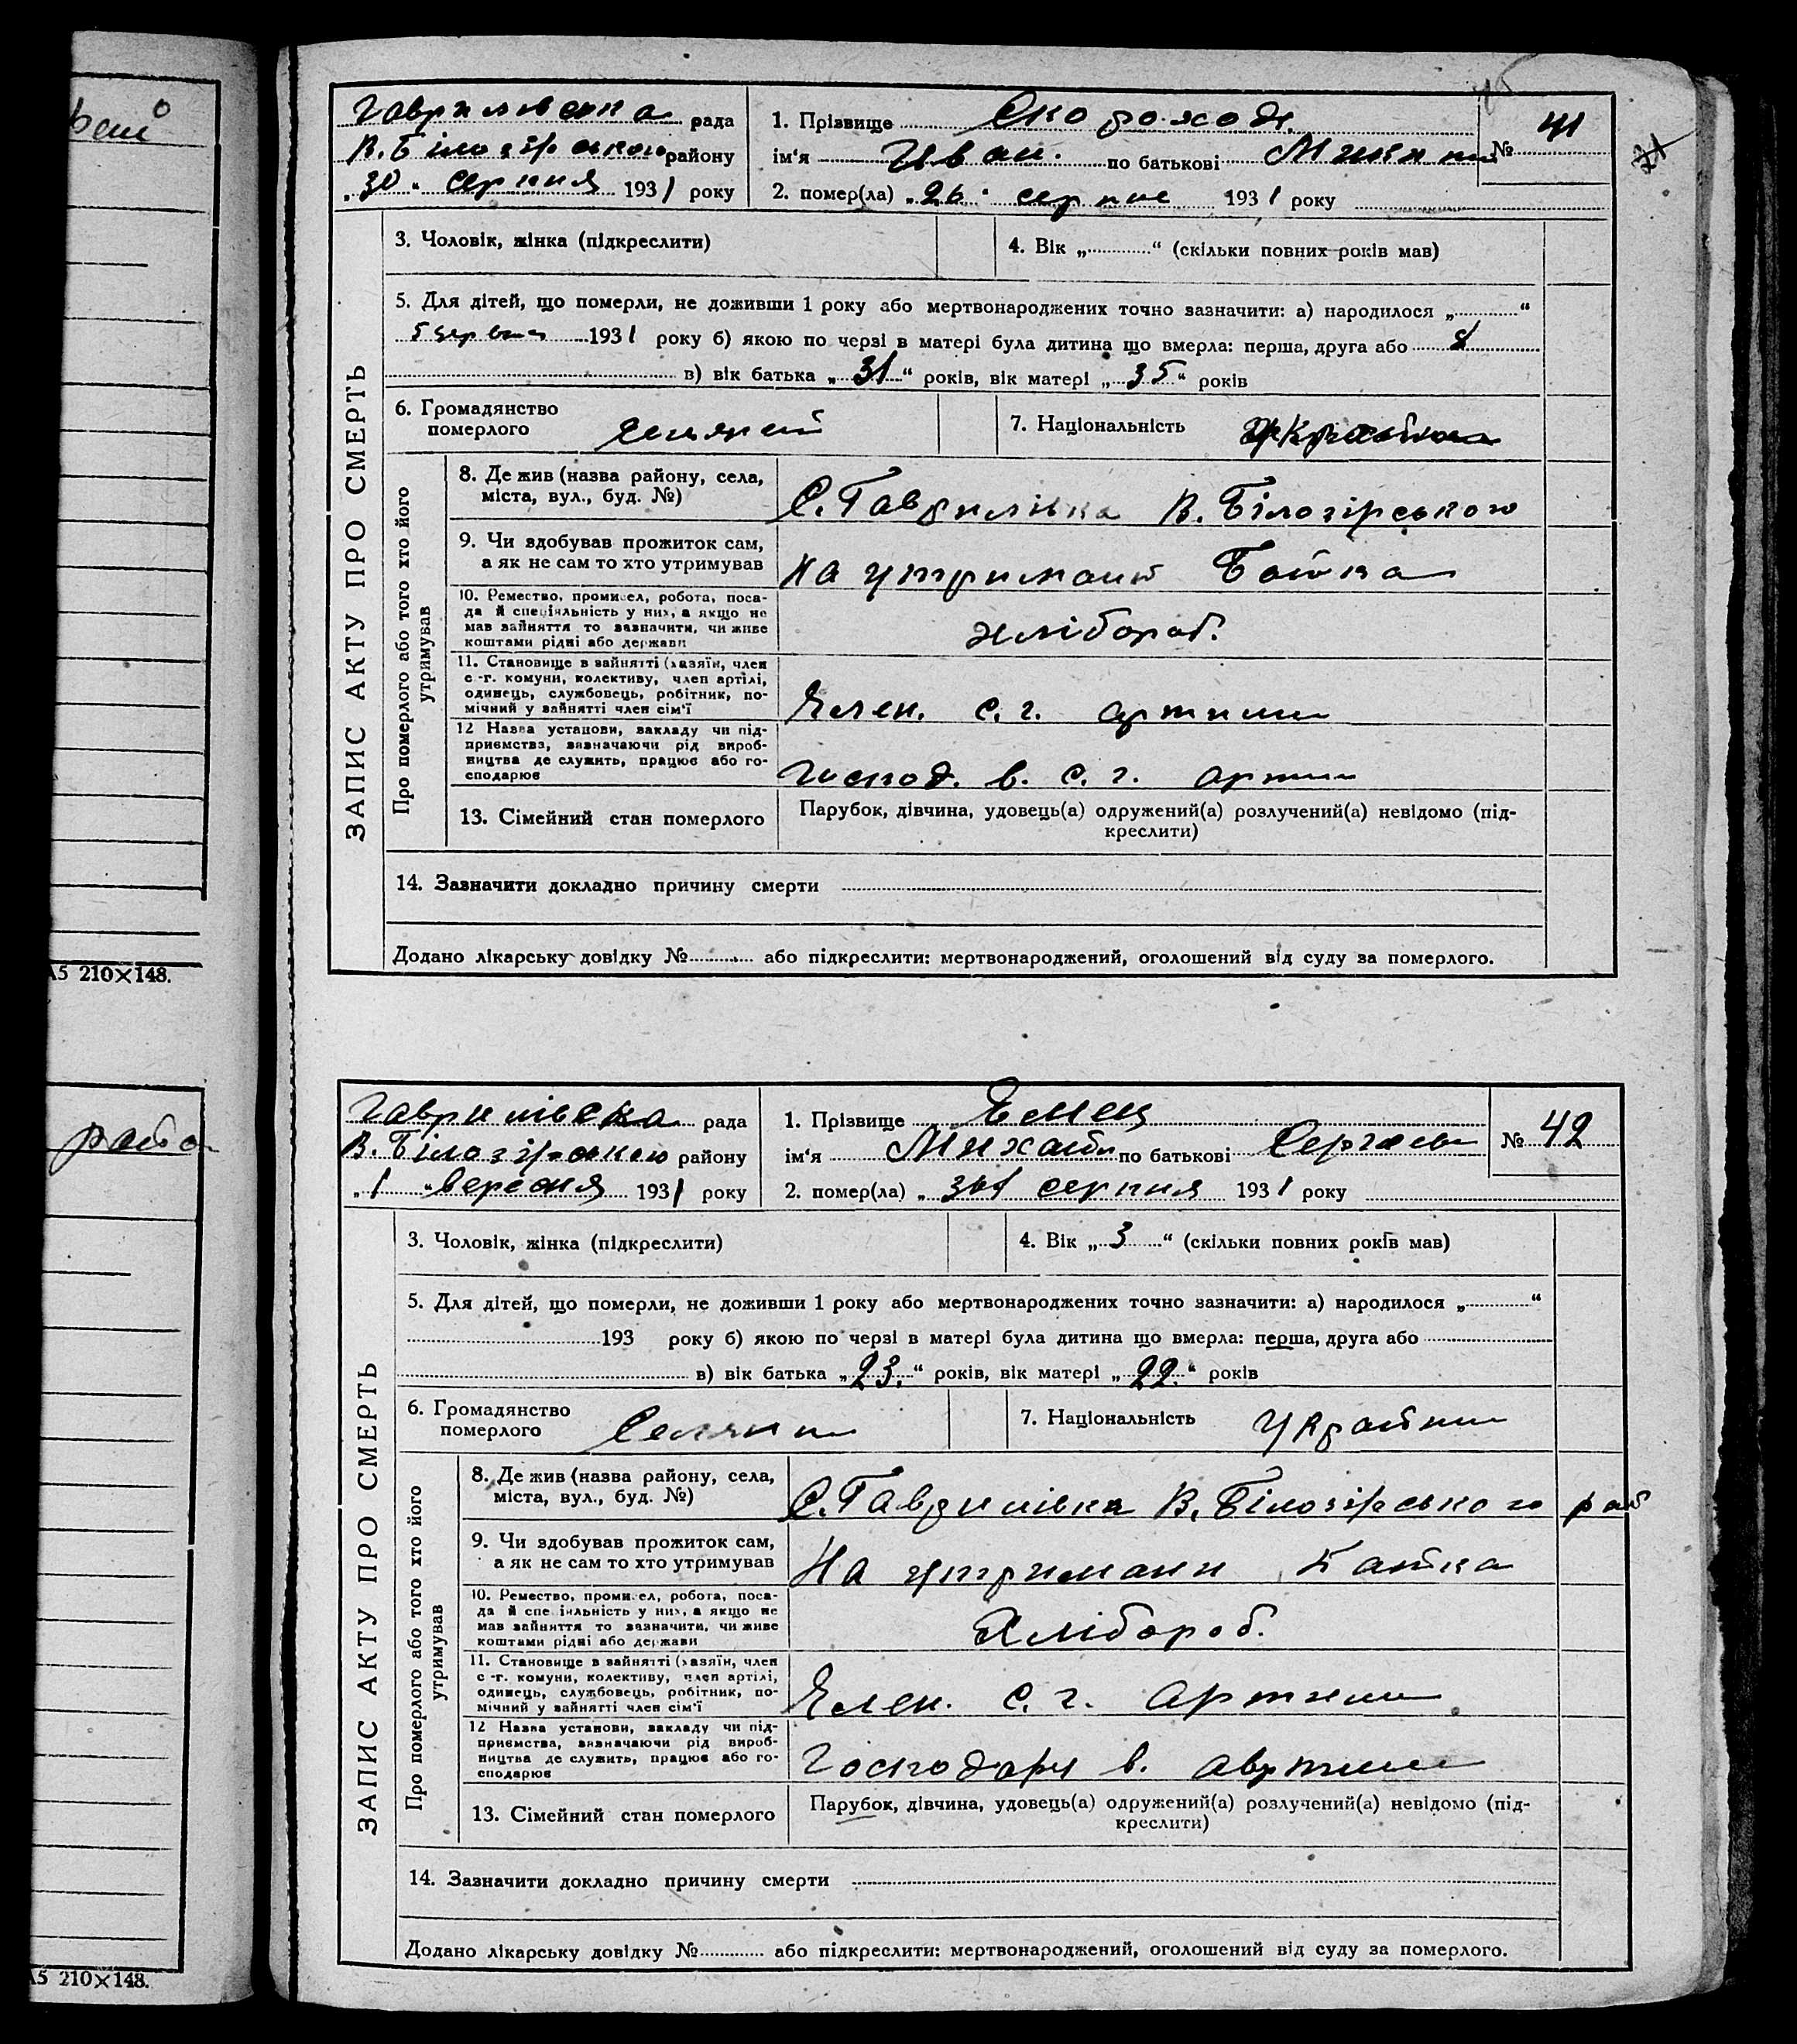 вет
А5 210×148.
райо
А5 210×148.
ЗАПИС АКТУ ПРО СМЕРТЬ
Гаврилівська рада
В. Білозірського району
„30“ серпня 1931 року
1. Прізвище Скороход
ім‘я Иван. по батькові
№ 41
2. помер(ла) „26“ серпня 1931 року
3. Чоловік, жінка (підкреслити)
4. Вік „ “ (скільки повних років мав)
5. Для дітей, що померли, не доживши 1 року або мертвонароджених точно зазначити: а) народилося „ “
5 червня 1931 року б) якою по черзі в матері була дитина що вмерла: перша, друга або 8
в) вік батька „31“ років, вік матері „35“ років
6. Громадянство
померлого
7. Національність
Про померлого або того хто його
утримував
8. Де жив (назва району, села,
міста, вул., буд. №)
С. Гаврилівка В. Білозірського
9. Чи здобував прожиток сам,
а як не сам то хто утримував
На утримані Батка
10. Ремество, промисел, робота, поса-
да й спеціяльність у них, а якщо не
мав зайняття то зазначити, чи живе
коштами рідні або держави
Хлібороб.
11. Становище в зайнятті (хазяїн, член
с.-г. комуни, колективу, член артілі,
одинець, службовець, робітник, по-
мічний у зайнятті член сім‘ї
Член. с. г. артили
12 Назва установи, закладу чи під-
приємства, зазначаючи рід вироб-
ництва де служить, працює або го-
сподарює
Господ. в. с. г. артил
13. Сімейний стан померлого
Парубок, дівчина, удовець(а) одружений(а) розлучений(а) невідомо (під-
креслити)
14. Зазначити докладно причину смерти
Додано лікарську довідку № або підкреслити: мертвонароджений, оголошений від суду за померлого.
ЗАПИС АКТУ ПРО СМЕРТЬ
Гаврилівска рада
В. Білозірського району
„1“ вересня 1931 року
1. Прізвище Емец
ім‘я Михайло по батькові Сергаев
№ 42
2. помер(ла) „ серпня 1931 року
3. Чоловік, жінка (підкреслити)
4. Вік „3“ (скільки повних років мав)
5. Для дітей, що померли, не доживши 1 року або мертвонароджених точно зазначити: а) народилося „ “
193 року б) якою по черзі в матері була дитина що вмерла: перша, друга або
в) вік батька „23.“ років, вік матері „22.“ років
6. Громадянство
померлого
Селянин
7. Національність Украйнин
Про померлого або того хто його
утримував
8. Де жив (назва району, села,
міста, вул., буд. №)
С. Гаврилівка В. Білозірського рай
9. Чи здобував прожиток сам,
а як не сам то хто утримував
На утримани Батка
10. Ремество, промисел, робота, поса-
да й спеціяльність у них, а якщо не
мав зайняття то зазначити, чи живе
коштами рідні або держави
Хлібороб.
11. Становище в зайнятті (хазяїн, член
с.-г. комуни, колективу, член артілі,
одинець, службовець, робітник, по-
мічний у зайнятті член сім‘ї
Член. с. г. артили
12 Назва установи, закладу чи під-
приємства, зазначаючи рід вироб-
ництва де служить, працює або го-
сподарює
Господарч в. авртили
13. Сімейний стан померлого
Парубок, дівчина, удовець(а) одружений(а) розлучений(а) невідомо (під-
креслити)
14. Зазначити докладно причину смерти
Додано лікарську довідку № або підкреслити: мертвонароджений, оголошений від суду за померлого.